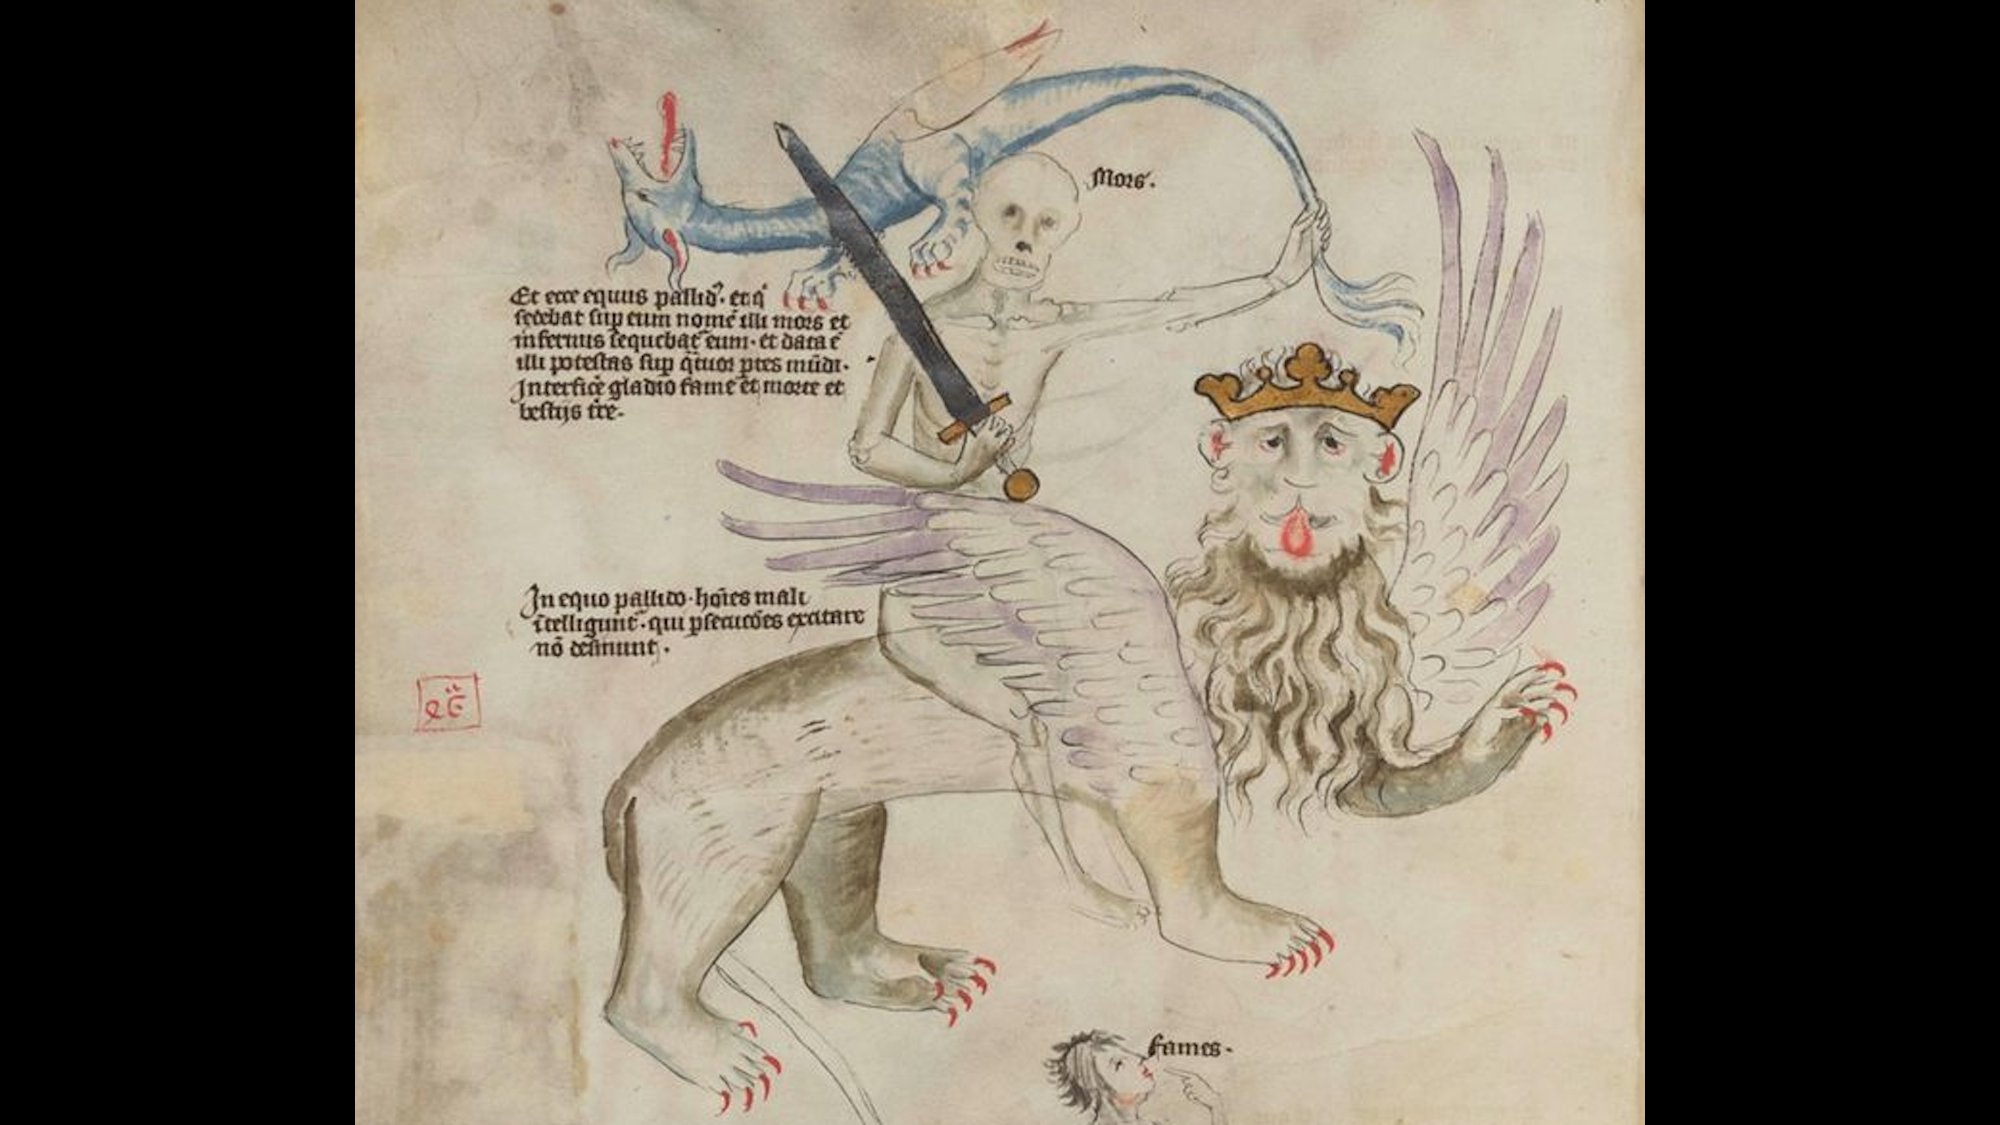 Mors.
Et ecce equus pallid᾽. et q̇
sedebat sup eum nomē illi mors et
infernus sequebat᷑ eum. et data ē
illi potestas sup q̄tuor ptes mūdi.
Interficē gladio fame et morte et
bestijs t̄re.
In equo pallido. hoīes mali
ītelligunt᷑. qui psecucōes excitare
nō desinunt.
Fames.